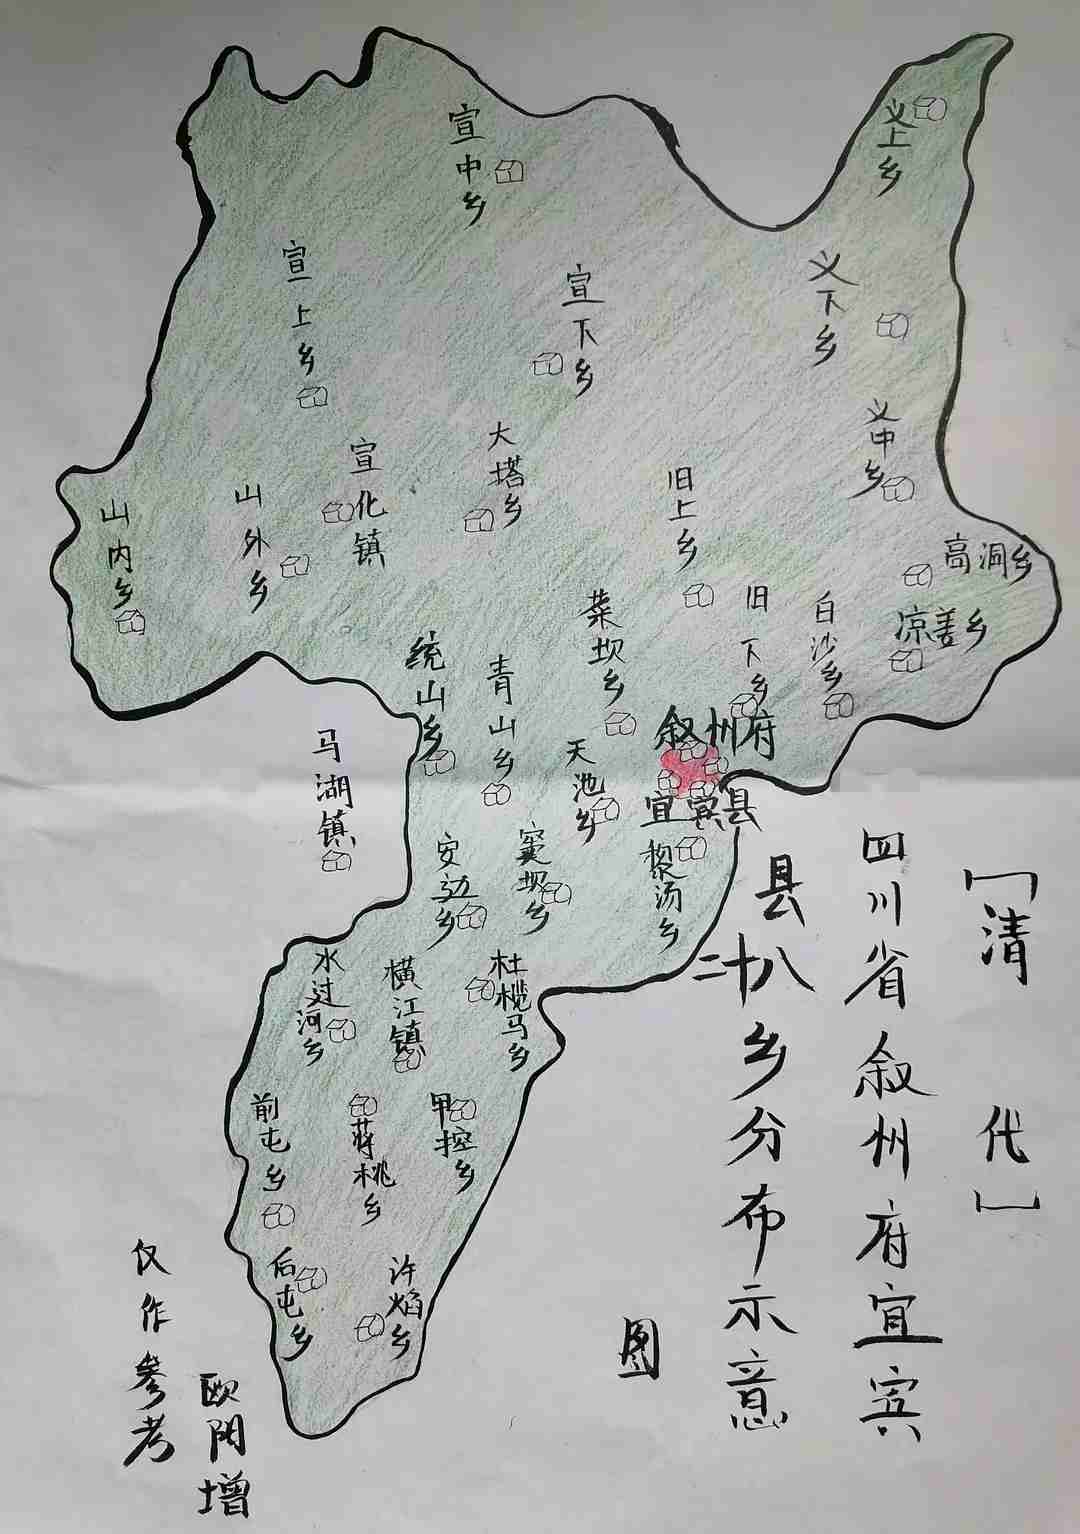 〔清代〕
四川省叙州府宜宾
县二十八乡分布示意
图
宣中乡
义上乡
宣上乡
宣下乡
义下乡
义中乡
大塔乡
宣化镇
旧上乡
山外乡
山内乡
高洞乡
凉姜乡
菜坝乡
旧下乡
白沙乡
统山乡
青山乡
叙州府
宜宾县
天池乡
马湖镇
安边乡
窦坝乡
黎汤乡
水过河乡
横江镇
杜榄马乡
前屯乡
蒋桃乡
甲控乡
后屯乡
许焰乡
仅作参考
欧阳增